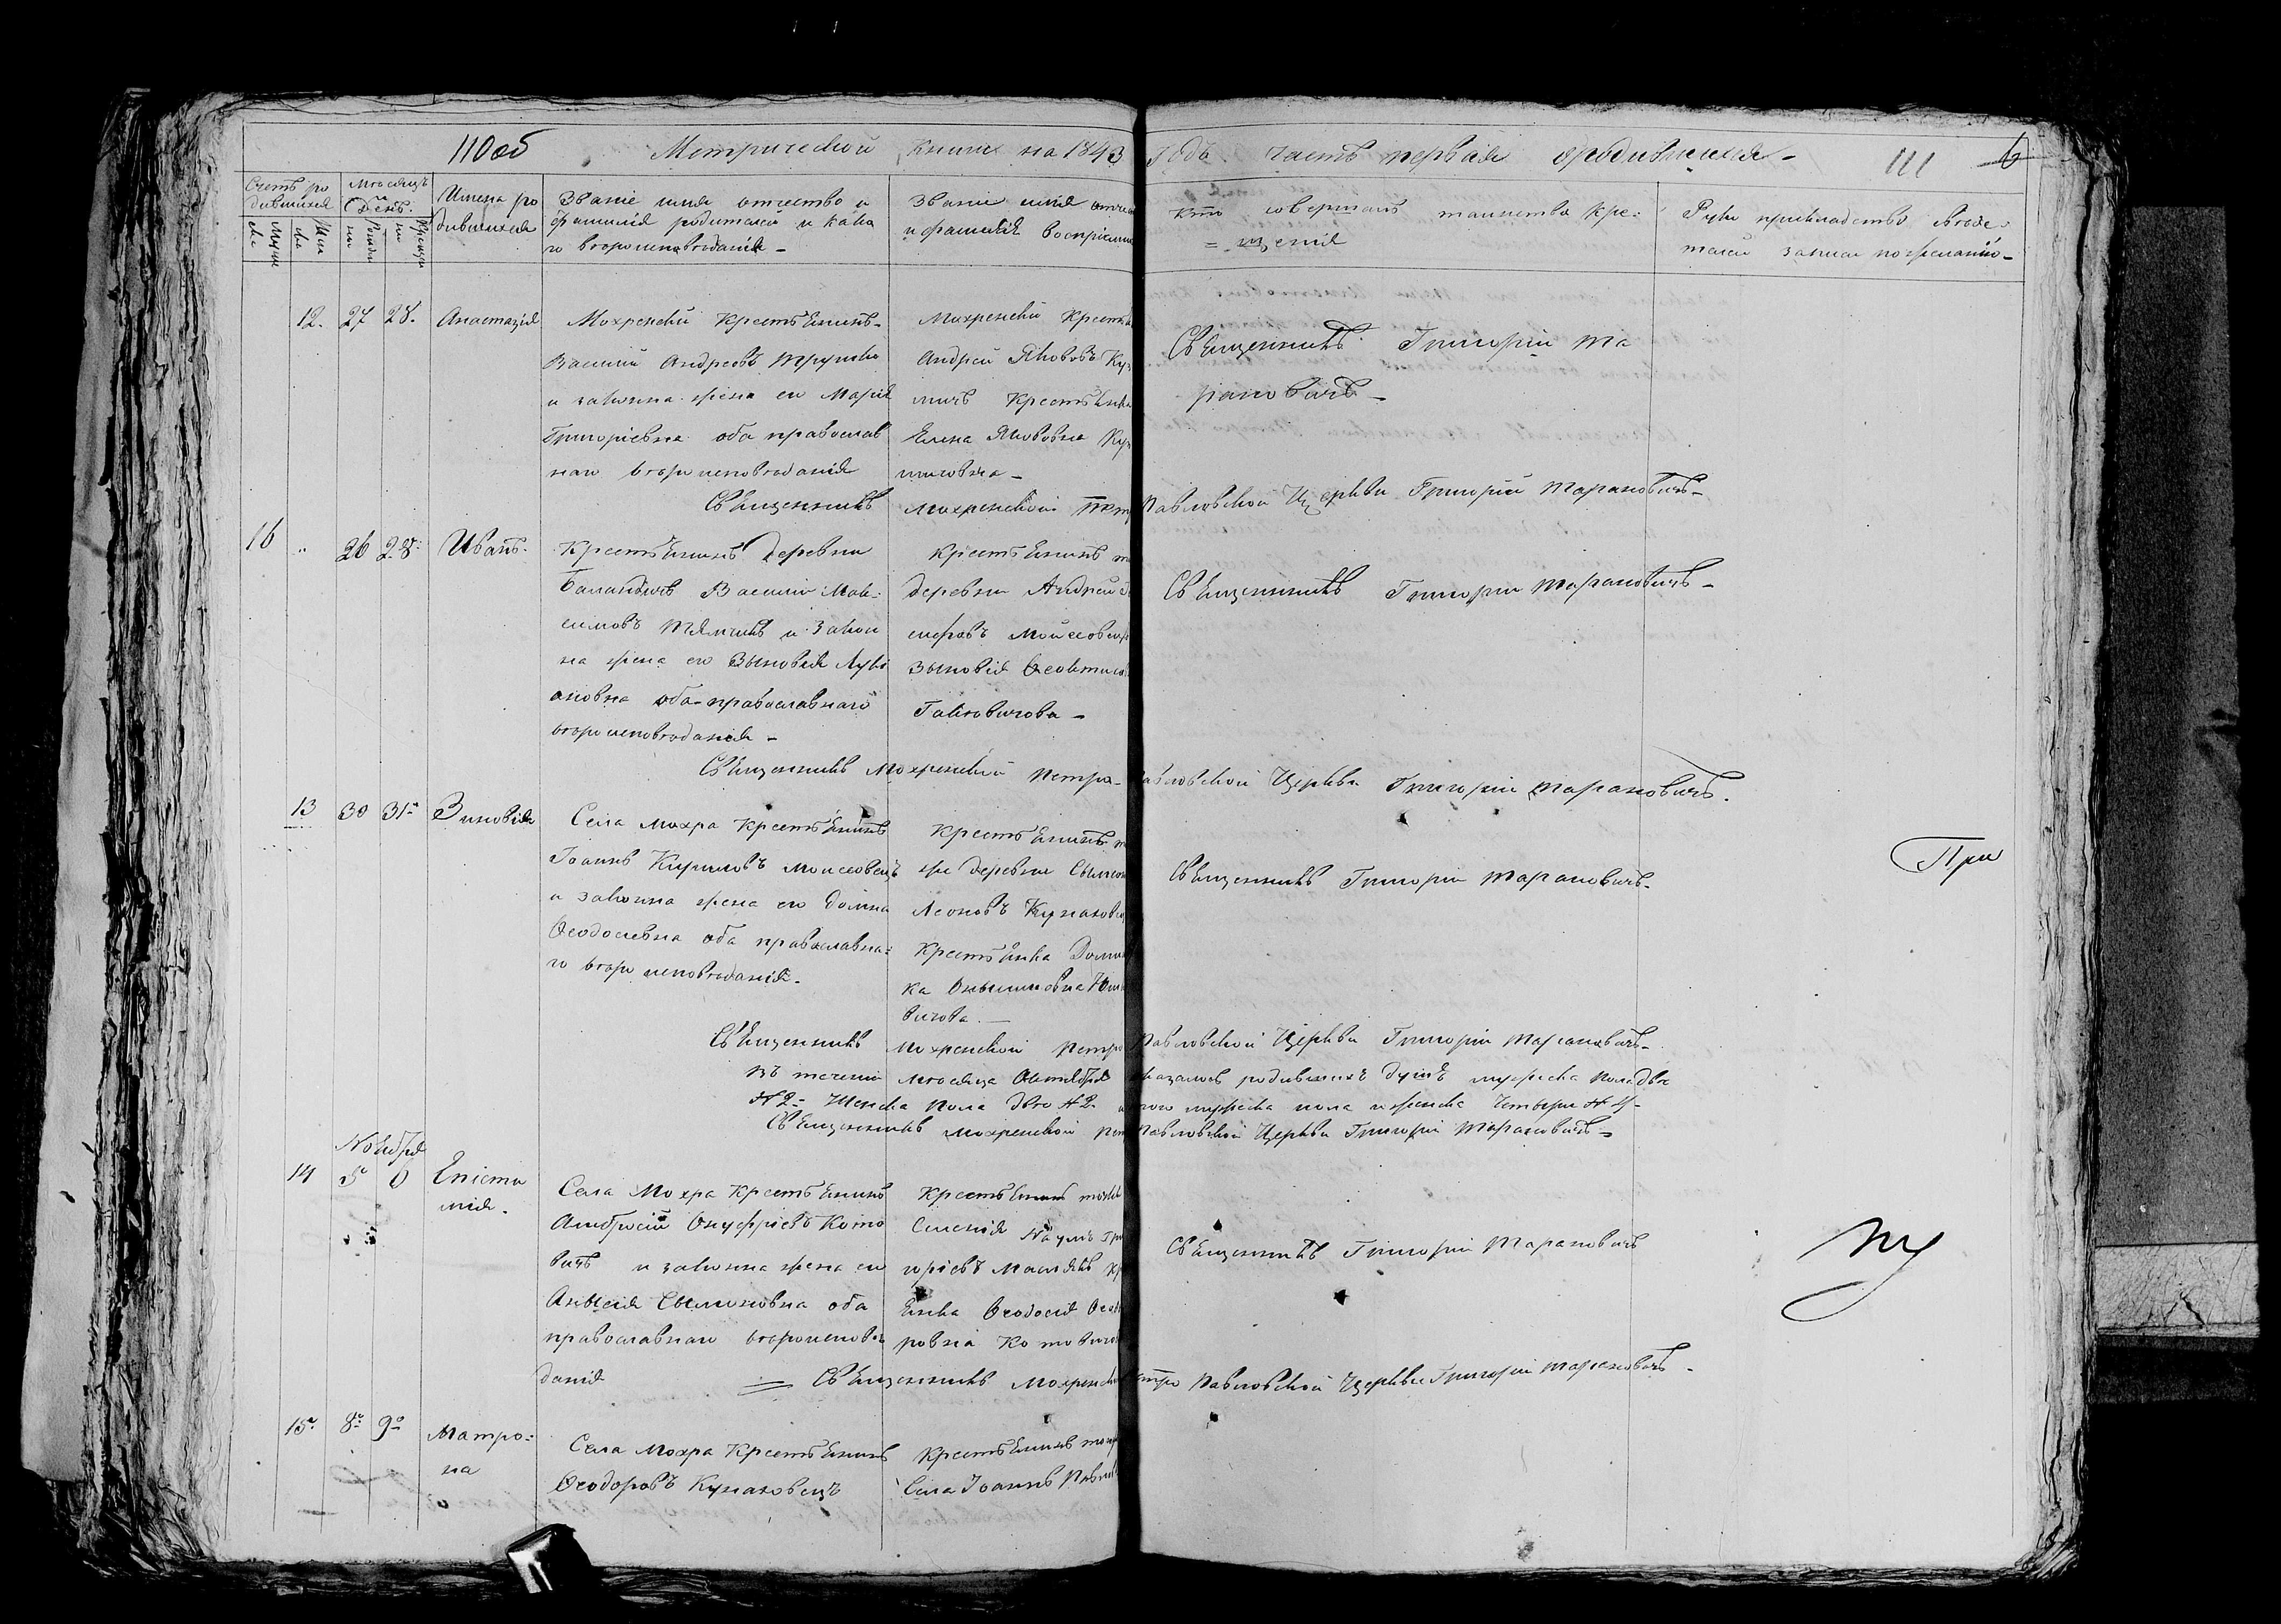 110об Метрической книги на 1843 годъ часть первая о родившихся - 111 6
Счетъ ро
дившихся
Мѣсяцъ
и
День.
Имена ро
дившихся
Званіе имя отчество и
фамилія родителей и како
го вѣроисповѣданія -
Званіе имя отче
и фамилія воспріемн
Кто совершалъ таинство Кре:
= щенія
Рукоприкладство свѣде:
телей записи по желанію -
12. 27 28. Анастазія
Мохренскій Крестьянинъ -
Василій Андреевъ
и законна жена его Марія
Григоріевна оба православ
наго вѣроисповѣданія
Мохренскій Крестья
Андрей Якововъ Ку
личъ Крестьянка
Елена Якововна Ку
личовна -
Священникъ Григорій Та
рановичъ -
Священникъ Мохренской Петро Павловской Церкви Григорій Тарановичъ -
16 " 26 28. Иванъ.
Крестьянинъ Деревни
Баландичъ Василій Мак:
симовъ и закон
на жена его Зыновія Луки
ановна оба православнаго
вѣроисповѣданія -
Крестьянинъ т
деревни Андрей
Мойсеовец
Зыновія Феоктис
Гайковичова -
Священникъ Григорій Тарановичъ -
Священникъ Мохренской Петро - Павловской Церкви Григорій Тарановичъ.
13 30 31 Зиновія
Села Мохра Крестьянинъ
Іоаннъ Кириловъ Моисеовецъ
и законна жена его Домна
Феодосіевна оба православна:
го вѣроисповѣданія -
Крестьянинъ т
же деревни Сымеон
Леоновъ Кунаховец
Крестьянка Доми
ка
вичова -
Священникъ Григорій Тарановичъ -
При
Священникъ Мохренской Петро Павловской Церкви Григорій Тарановичъ -
Въ теченіи мѣсяца Октября оказалось родившихъ душъ мужеска пола двѣ
№ 2 - Женска пола двѣ № 2 - того мужеска пола и женска четыри № 4 -
Священникъ Мохренской Пет Павловской Церкви Григорій Тарановичъ -
Ноября
14 5 6 Епісти
мія.
Села Мохра Крестьянинъ
Амбросій Онуфріевъ Кото
вичъ и законна жена его
Анысія Сымоновна оба
православнаго вѣроисповѣ
данія
Крестьянинъ тойже
Селенія Наумъ Гри
горіевъ Маслякъ Кр
янка Феодосія Фео
ровна Котовичо
Священникъ Григорій Тарановичъ
Священникъ Мохренск етро Павловской Церкви Григорій Тарановичъ -
15. 8. 9. Матро:
на
Села Мохра Крестьянинъ
Феодоровъ Кунаховецъ
Крестьянинъ тогож
Села Іоаннъ Павло